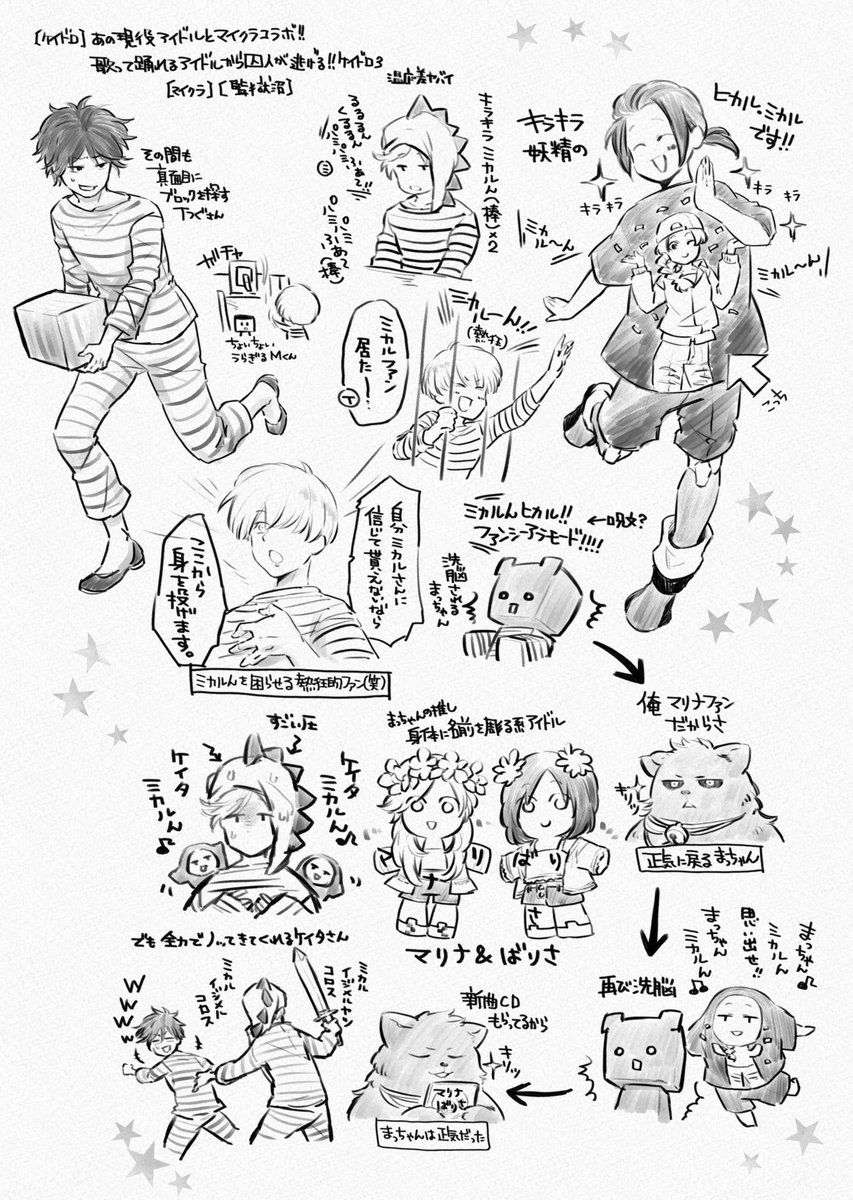 【ケイドロ】あの現役アイドルとマイクラコラボ!!
歌って踊れるアイドルから囚人が逃げる!!ケイドロ3
【マイクラ】【監獄沼】
その間も
真面目に
ブロックを探す
下つぐさん
ガチャ
ちょいちょい
うらぎるMくん
温度差ヤバイ
キラキラ ミカルん(棒)×2
るるるん
くるるん
パミふぁて!!
パミふぁて(棒)
ヒカル・ミカル
です!!
キラキラ
妖精の
キラ キラ
キラ キラ
ミカル〜ん
ミカル〜ん
こっち
ミカル〜ん!!
(熱狂)
ミカルファン
居たー!
自分ミカルさんに
信じて貰えないなら
ここから
身を投げます。
ミカルんを困らせる熱狂的ファン(笑)
ミカルんヒカル!!
ファンシーアラモード!!!!
←呪文?
洗脳される
まっちゃん
俺マリナファン
だからさ
キリッ
正気に戻るまっちゃん
まっちゃんの推し
身体に名前を彫る系アイドル
マ
リ
ナ
ばり
さ
マリナ&ばりさ
すごい圧
ケイタ
ミカルん♪
ケイタ
ミカルん♪
でも全力でノッてきてくれるケイタさん
wwww
ミカル
イジメル
コロス
ミカル
イジメルヤツ
コロス
まっちゃん♪
ミカルん
思い出せ!!
まっちゃん
ミカルん♪
再び洗脳
新曲CD
もらってるから
キリッ
マリナ
ばりさ
まっちゃんは正気だった